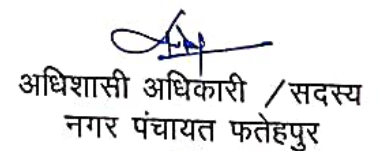 अधिशासी अधिकारी / सदस्य
नगर पंचायत फतेहपुर